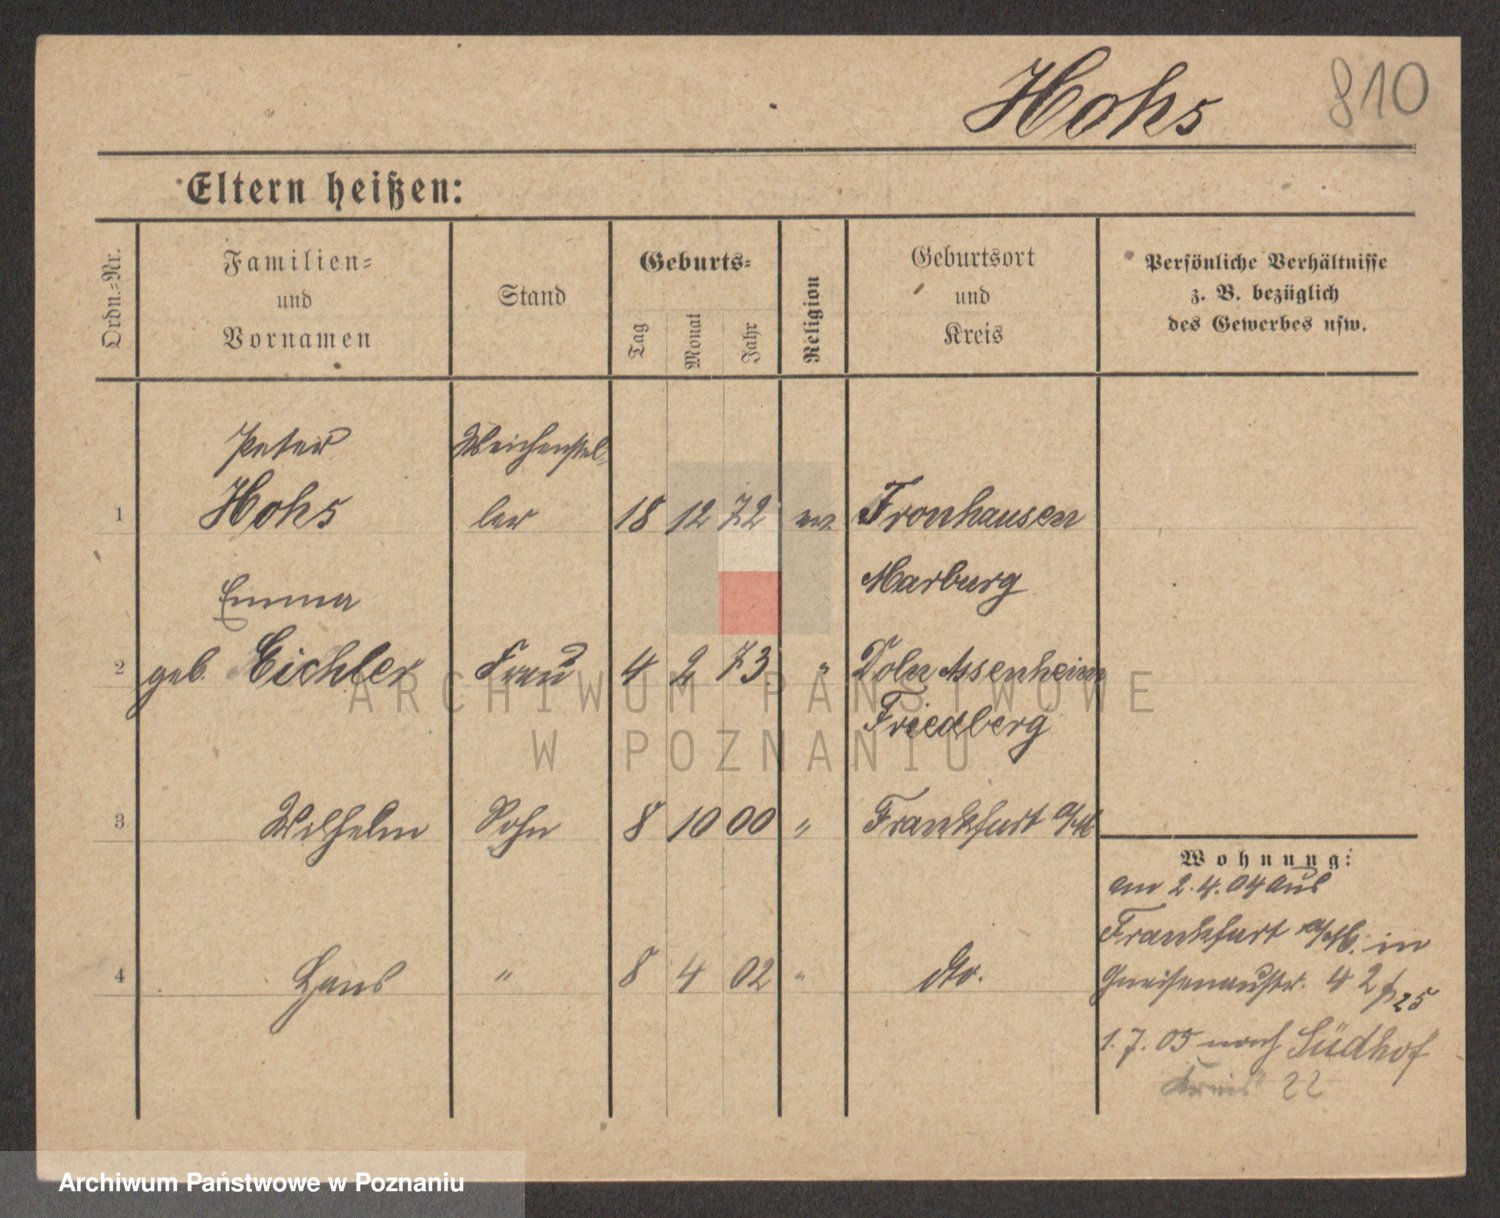 Hohs 810
Eltern heißen:
Ordn.-Nr.
Familien-
und
Vornamen
Stand
Geburts-
Tag
Monat
Jahr
Religion
Geburtsort
und
Kreis
Persönliche Verhältnisse
z. B. bezüglich
des Gewerbes usw.
Peter Weichenstel-
1 Hohs ler 18 12 72 ev. Fronhausen
Emma Marburg
2 geb. Eichler Frau 4 2 73 " Assenheim
Friedberg
3 Wilhelm Sohn 8 10 00 " Frankfurt a/M
Wohnung:
am 2.4.04 aus
Frankfurt a/M. in
4 Hans " 8 4 02 " dto.
Gneisenaustr. 4 2 25
1.7.05 nach Südhof
Kreis 22
ARCHIWUM PAŃSTWOWE
W POZNANIU
Archiwum Państwowe w Poznaniu